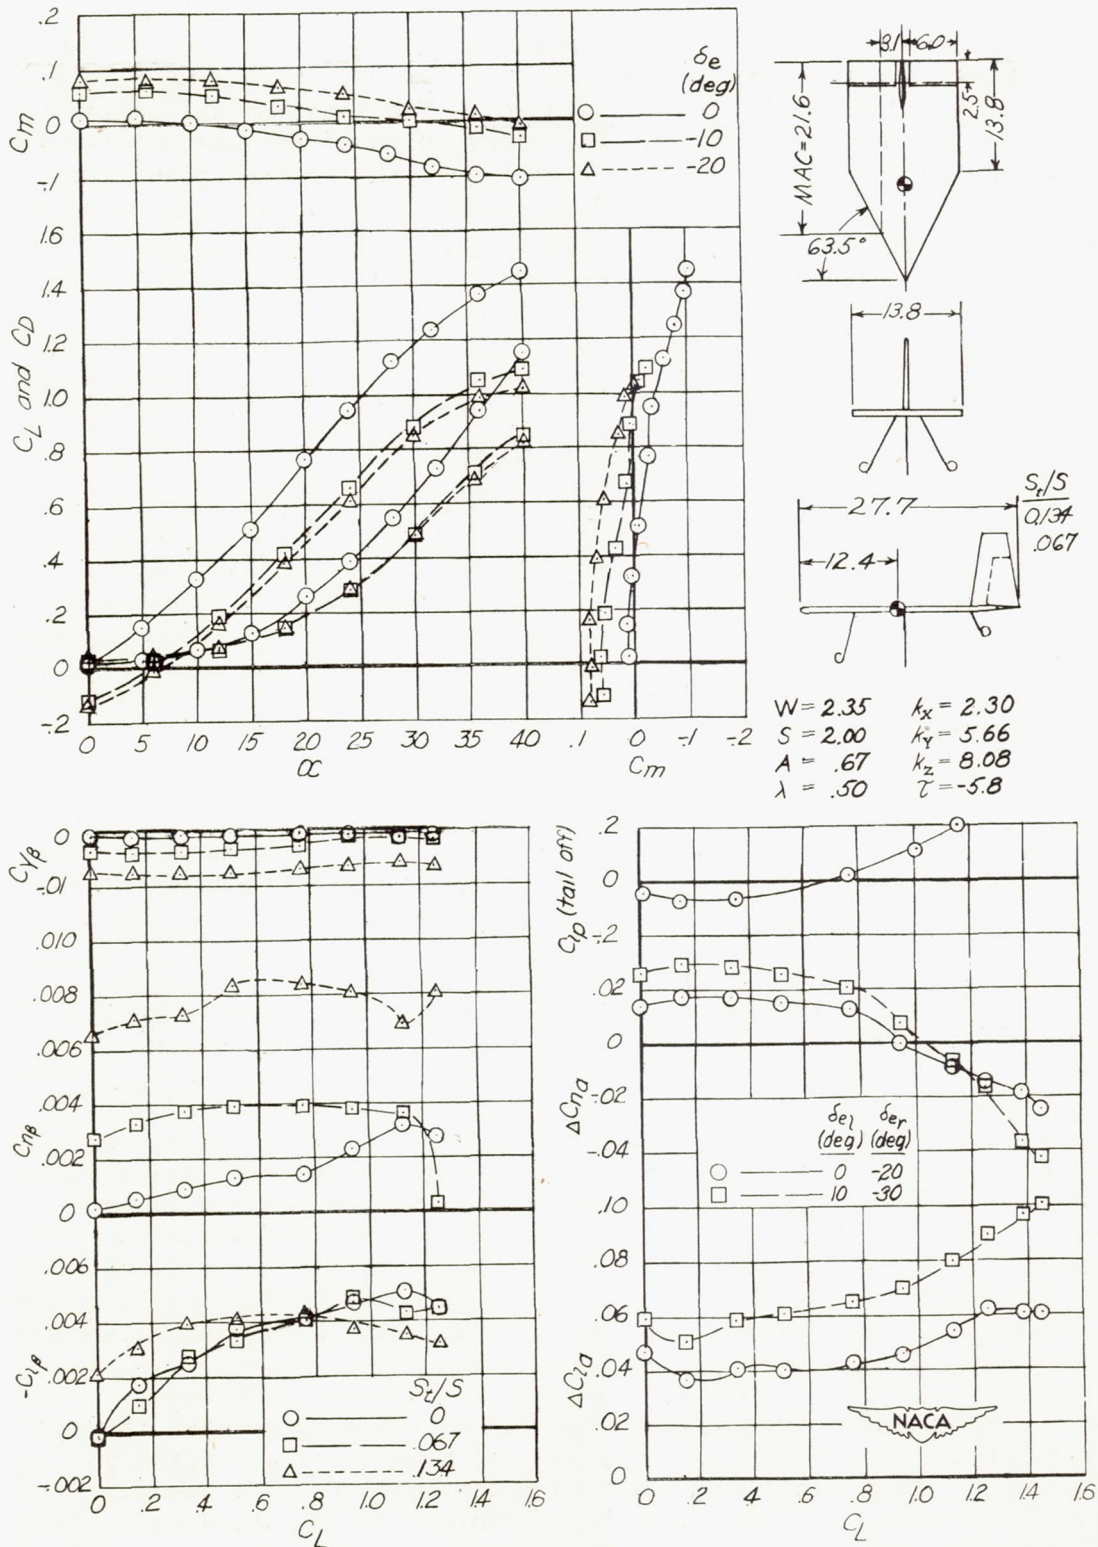 .2
.1
0
-.1
Cm
δe
(deg)
0
-10
-20
1.6
1.4
1.2
1.0
.8
.6
.4
.2
0
-.2
CL and CD
0 5 10 15 20 25 30 35 40
α
.1 0 -.1 -.2
Cm
3.1 6.0
2.5
13.8
MAC=21.6
63.5°
13.8
27.7
12.4
St/S
0.134
.067
W = 2.35 kX = 2.30
S = 2.00 kY = 5.66
A = .67 kZ = 8.08
λ = .50 τ = -5.8
0
-.01
CYβ
.010
.008
.006
.004
.002
0
Cnβ
.006
.004
.002
0
-.002
-Clβ
St/S
0
.067
.134
0 .2 .4 .6 .8 1.0 1.2 1.4 1.6
CL
.2
0
-.2
Clp (tail off)
.02
0
-.02
-.04
ΔCna
δel δer
(deg) (deg)
0 -20
10 -30
.10
.08
.06
.04
.02
0
ΔCla
NACA
0 .2 .4 .6 .8 1.0 1.2 1.4 1.6
CL